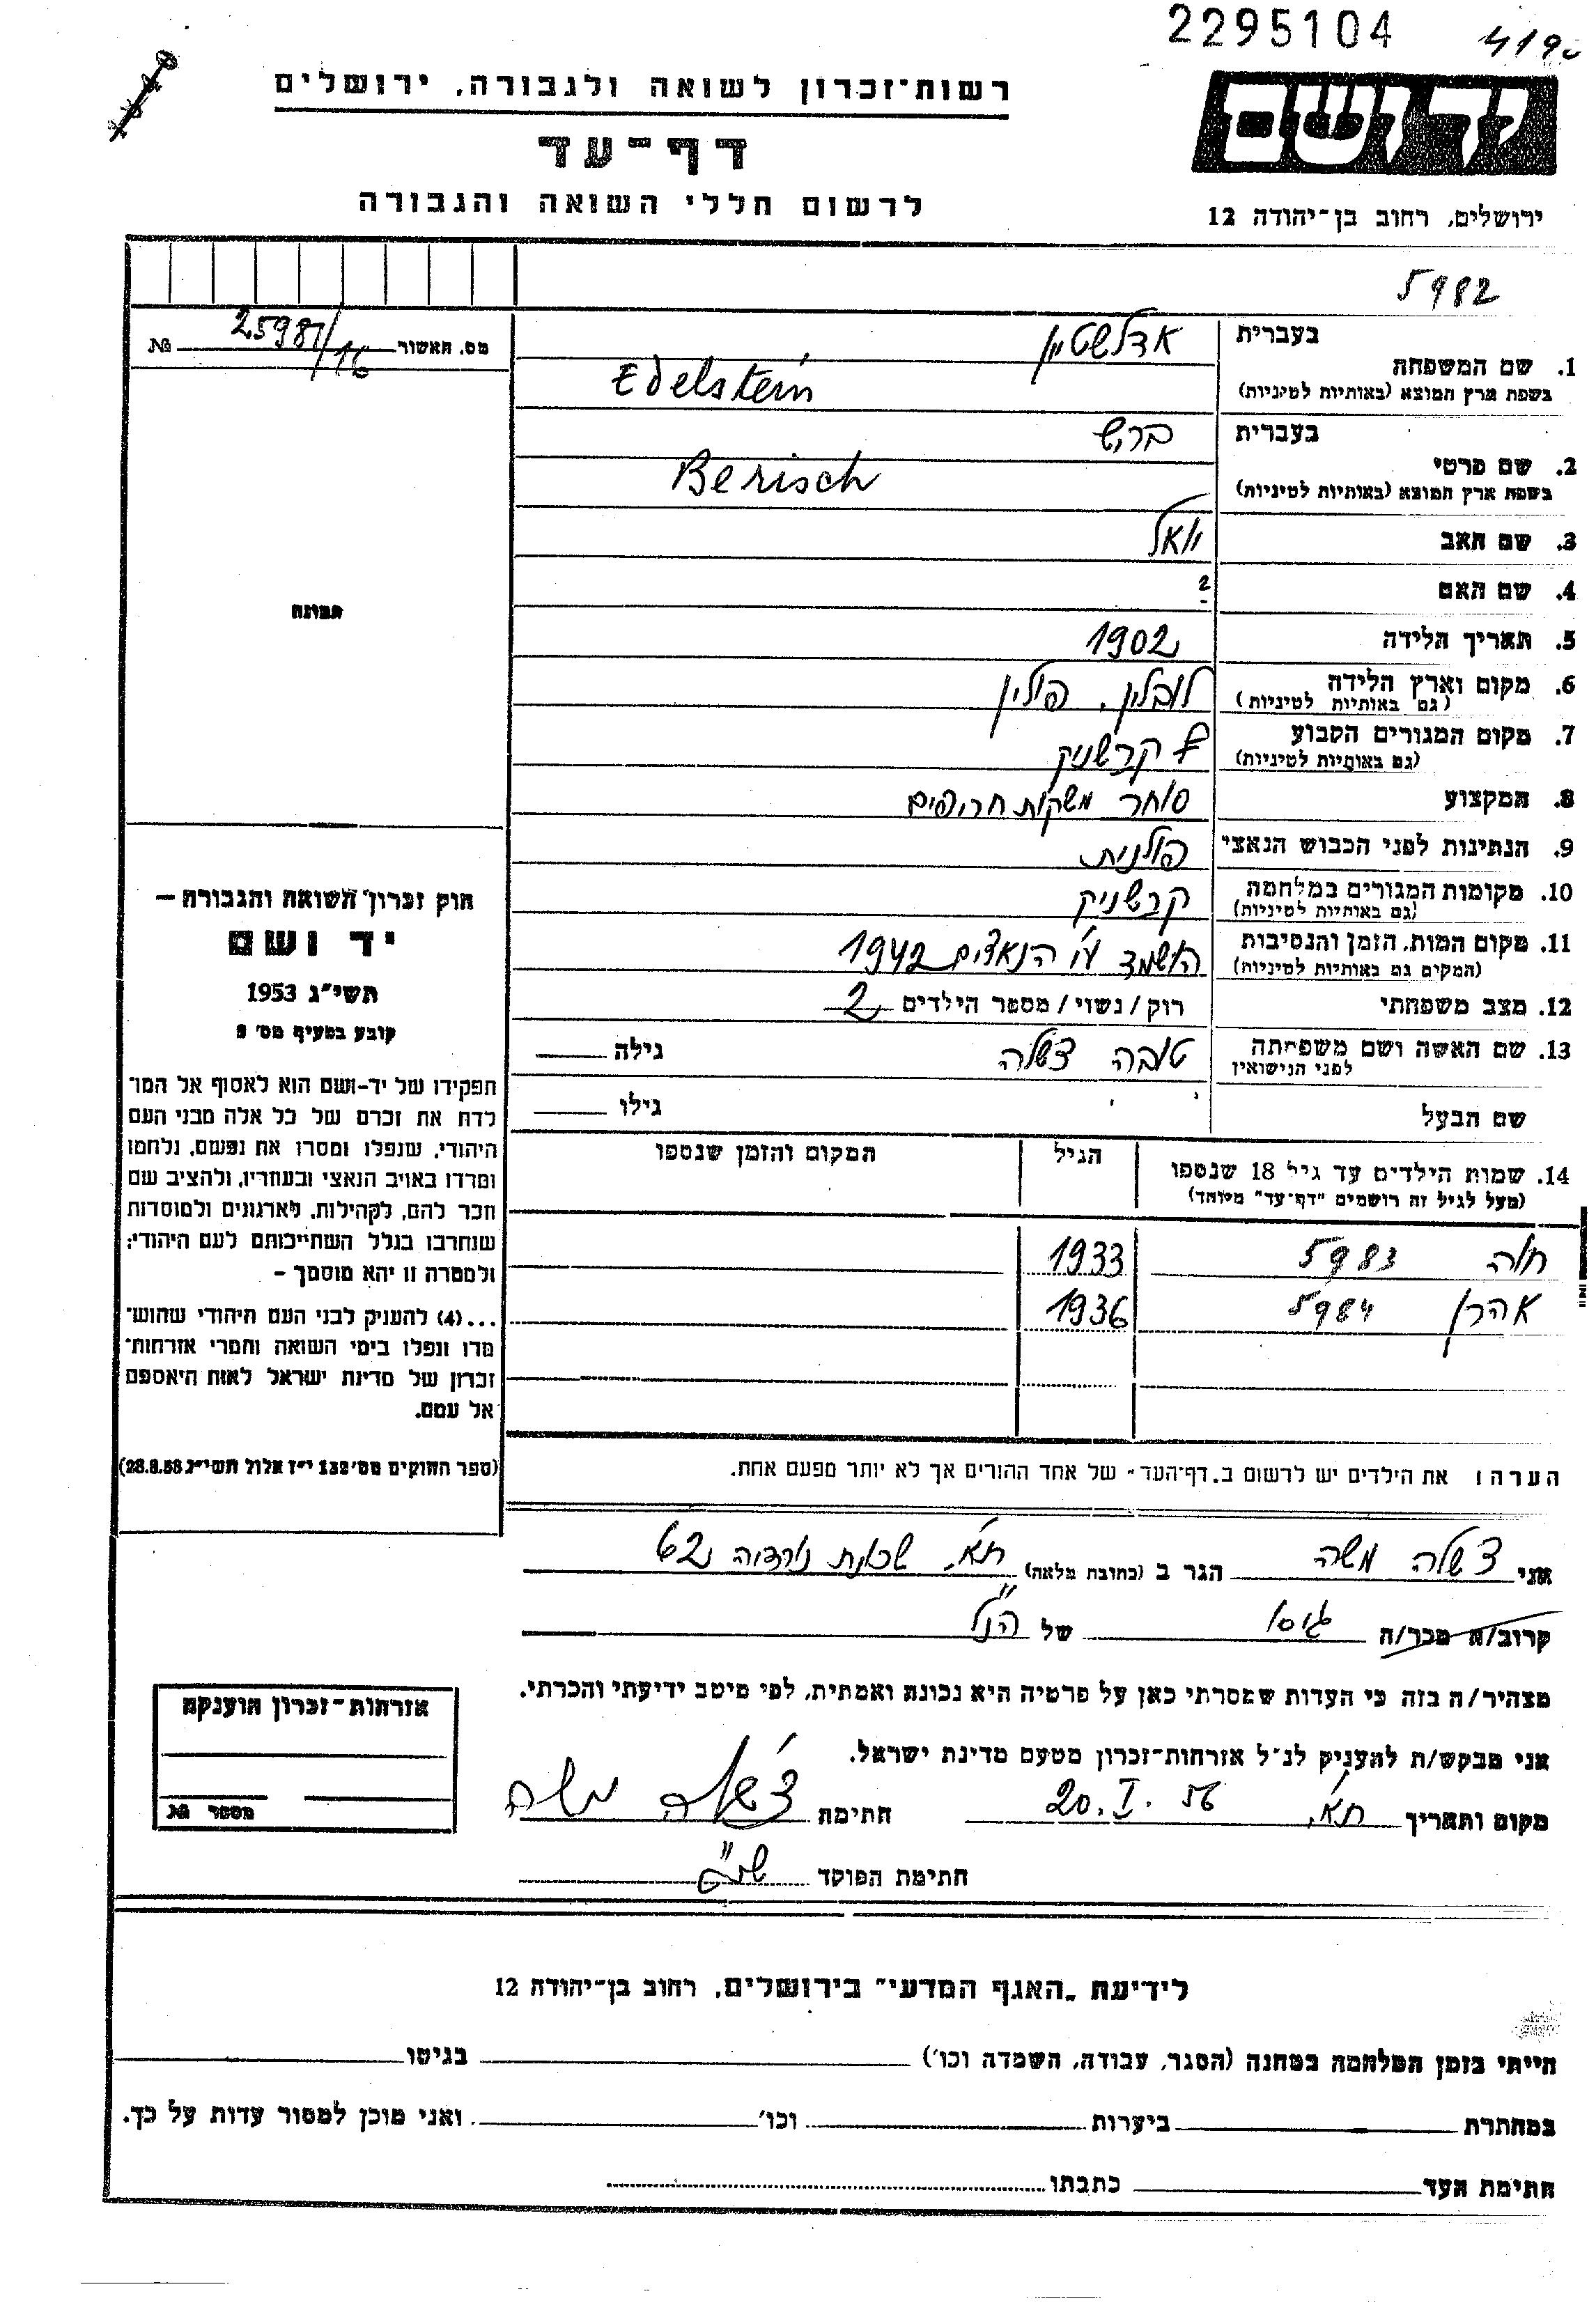 2295104
רשות־זכרון לשואה ולגבורה, ירושלים
דף־עד
לרשום חללי השואה והגבורה
יד ושם
ירושלים, רחוב בן־יהודה 12
5982
מס. האשור 25981/16 №
תמונה
1. שם המשפחה
בעברית אדלשטיין
בשפת ארץ המוצא (באותיות לטיניות) Edelstein
2. שם פרטי
בעברית בריש
בשפת ארץ המוצא (באותיות לטיניות) Berisch
3. שם האב יואל
4. שם האם ?
5. תאריך הלידה 1902
6. מקום וארץ הלידה לובלין, פולין
(גם באותיות לטיניות)
7. מקום המגורים הקבוע קרשניק
(גם באותיות לטיניות)
8. המקצוע סוחר משקאות חריפים
9. הנתינות לפני הכבוש הנאצי פולנית
10. מקומות המגורים במלחמה קרשניק
(גם באותיות לטיניות)
11. מקום המות, הזמן והנסיבות הושמד ע"י הנאצים 1942
(המקום גם באותיות לטיניות)
12. מצב משפחתי רוק/נשוי/מספר הילדים 2
13. שם האשה ושם משפחתה טובה צ'שלה גילה
לפני הנישואין
שם הבעל גילו
14. שמות הילדים עד גיל 18 שנספו הגיל המקום והזמן שנספו
(מעל לגיל זה רושמים "דף־עד" מיוחד)
חוה 5983 1933
אהרן 5984 1936
חוק זכרון השואה והגבורה —
יד ושם
תשי״ג 1953
קובע בסעיף מס' 2
תפקידו של יד-ושם הוא לאסוף אל המו־
לדת את זכרם של כל אלה מבני העם
היהודי, שנפלו ומסרו את נפשם, נלחמו
ומרדו באויב הנאצי ובעוזריו, ולהציב שם
וזכר להם, לקהילות, לארגונים ולמוסדות
שנחרבו בגלל השתייכותם לעם היהודי;
ולמטרה זו יהא מוסמך —
...(4) להעניק לבני העם היהודי שהוש־
מדו ונפלו בימי השואה והמרי אזרחות־
זכרון של מדינת ישראל לאות היאספם
אל עמם.
(ספר החוקים מס' 132 י״ז אלול תשי״ג 28.8.53)
הערה: את הילדים יש לרשום ב„דף־העד״ של אחד ההורים אך לא יותר מפעם אחת.
אני צ'שלה משה הגר ב (כתובת מלאה) ת"א, שכונת נורדיה
קרוב/ה מכר/ה גיסו של הנ"ל
מצהיר/ה בזה כי העדות שמסרתי כאן על פרטיה היא נכונה ואמתית, לפי מיטב ידיעתי והכרתי.
אני מבקש/ת להעניק לנ״ל אזרחות־זכרון מטעם מדינת ישראל.
מקום ותאריך ת"א, 20.I.56 חתימה צ'שלה משה
חתימת הפוקד
אזרחות־זכרון הוענקה
מספר №
לידיעת „האגף המדעי״ בירושלים, רחוב בן־יהודה 12
הייתי בזמן המלחמה במחנה (הסגר, עבודה, השמדה וכו') בגיטו
במחתרת ביערות וכו' ואני מוכן למסור עדות על כך.
חתימת העד כתבתו